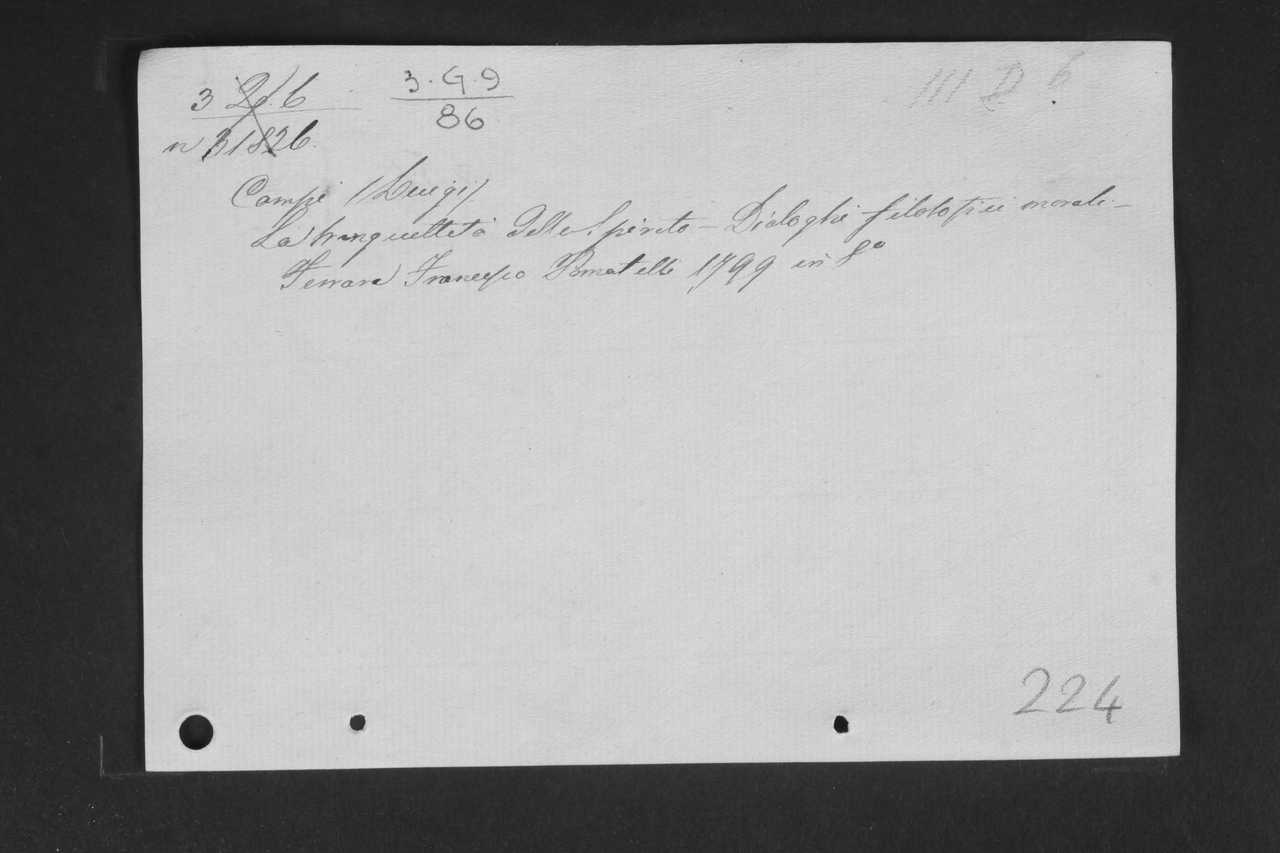 3 2. 6
n 31826.
3. G. 9
86
III D 6
Campi (Luigi)
La tranquillità dello Spirito – Dialoghi filosofici morali –
Ferrara Francesco Pomatelli 1799 in 8º
224